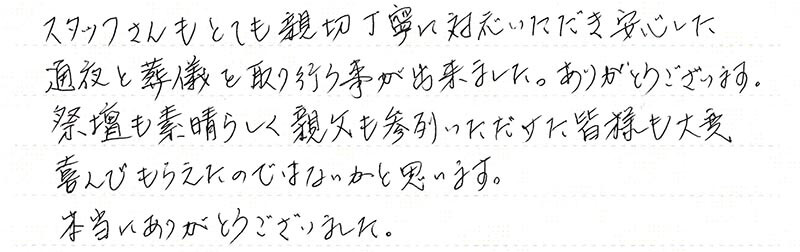 スタッフさんもとても親切丁寧に対応いただき安心した
通夜と葬儀を取り行う事が出来ました。ありがとうございます。
祭壇も素晴らしく親父も参列いただけた皆様も大変
喜んでもらえたのではないかと思います。
本当にありがとうございました。